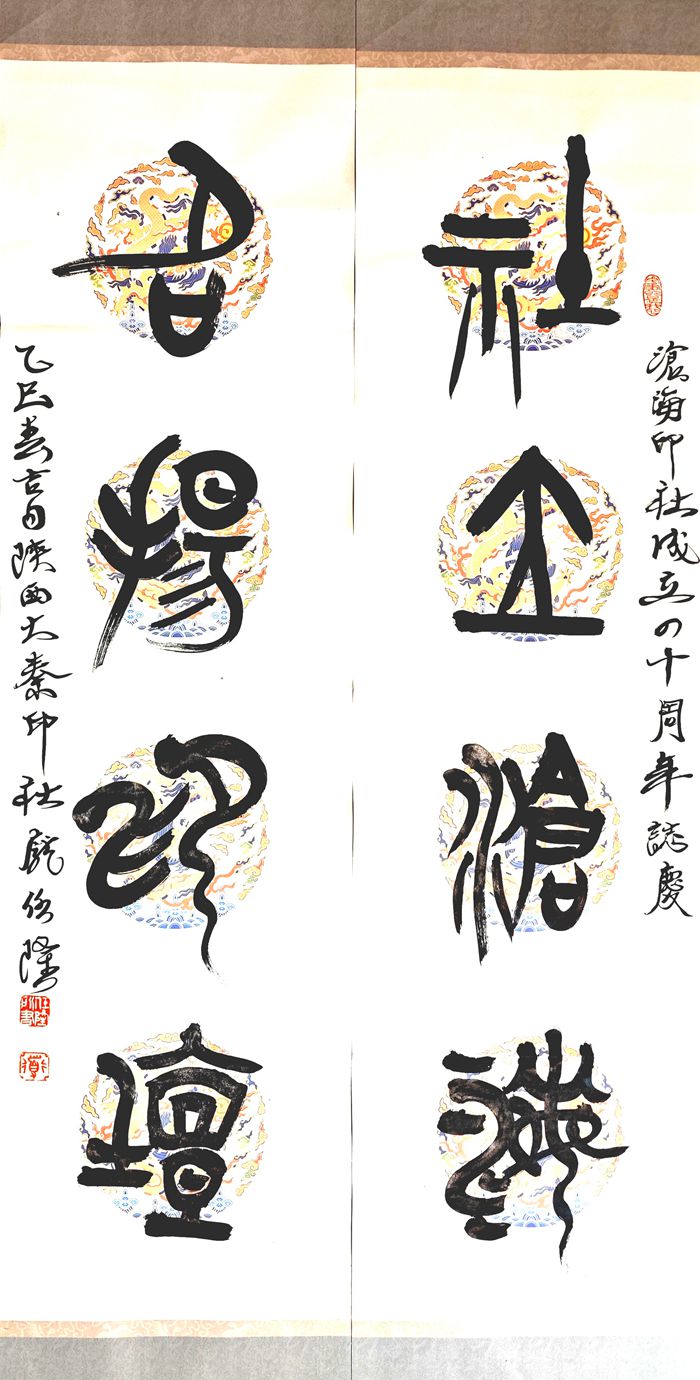 滄海印社成立四十周年誌慶
社立滄海
名揚印壇
乙巳春吉日陝西大秦印社龐任隆